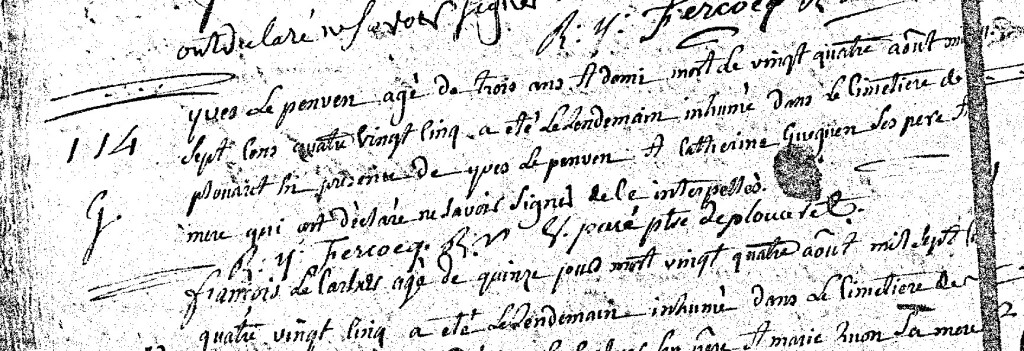 ont declaré ne savoir signer
R. Y. Fercocq R
yves Le penven agé de trois ans et demi mort le vingt quatre août mil
114
sept cens quatre vingt cinq a eté Le Lendemain inhumé dans Le Cimetiere de
plouaret En presence de yves Le penven et Catherine Gueguen Ses pere et
G.
mere qui ont dèclaré ne savoir Signer de ce interpellés.
R. Y. Fercocq. R. V. curé ptre de ploueret.
françois Le agé de quinze jours mort vingt quatre août mil sept
quatre vingt cinq a eté Le Lendemain inhumé dans Le Cimetiere de
père et marie La mere